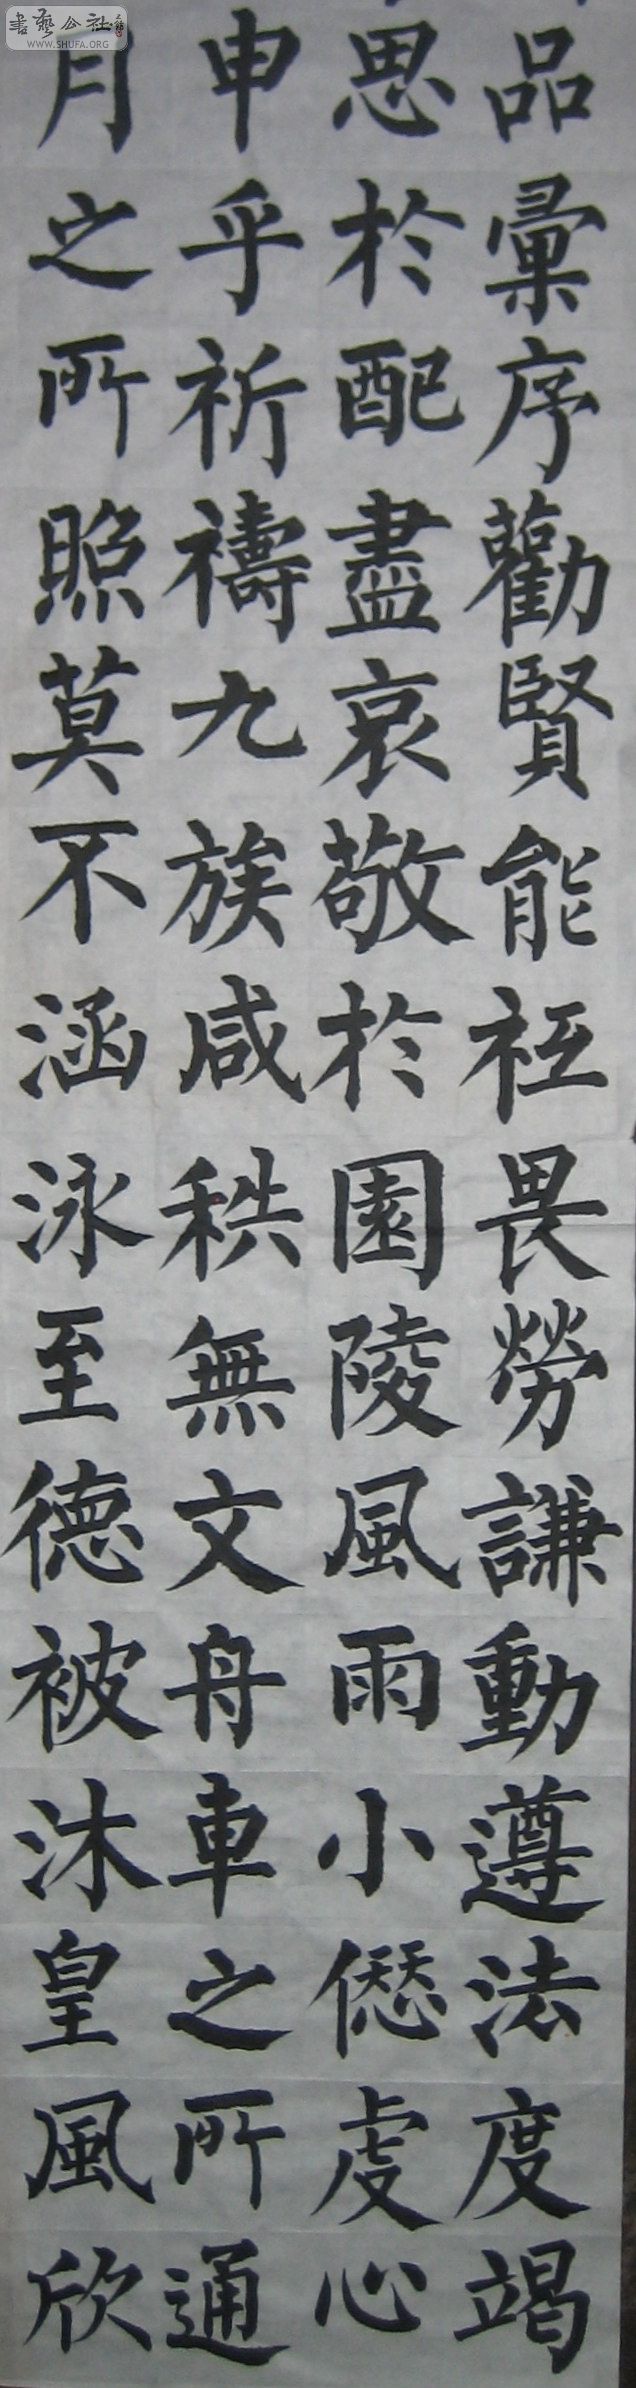 品彙序勸賢能祗畏勞謙動遵法度竭
思於配盡哀敬於園陵風雨小僁虔心
申乎祈禱九族咸秩無文舟車之所通
月之所照莫不涵泳至德被沐皇風欣
書藝公社
WWW.SHUFA.ORG